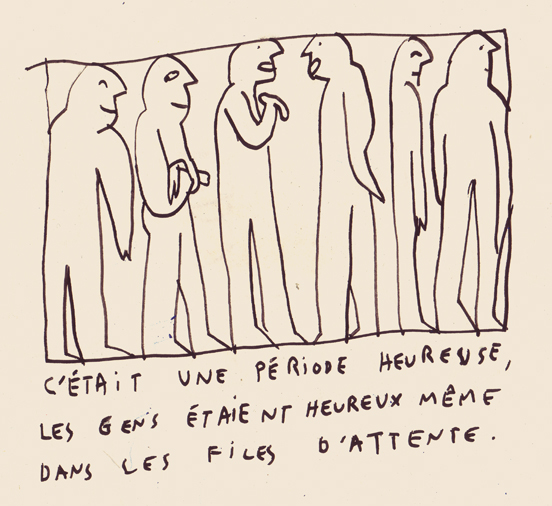 C'ÉTAIT UNE PÉRIODE HEUREUSE,
LES GENS ÉTAIENT HEUREUX MÊME
DANS LES FILES D'ATTENTE.